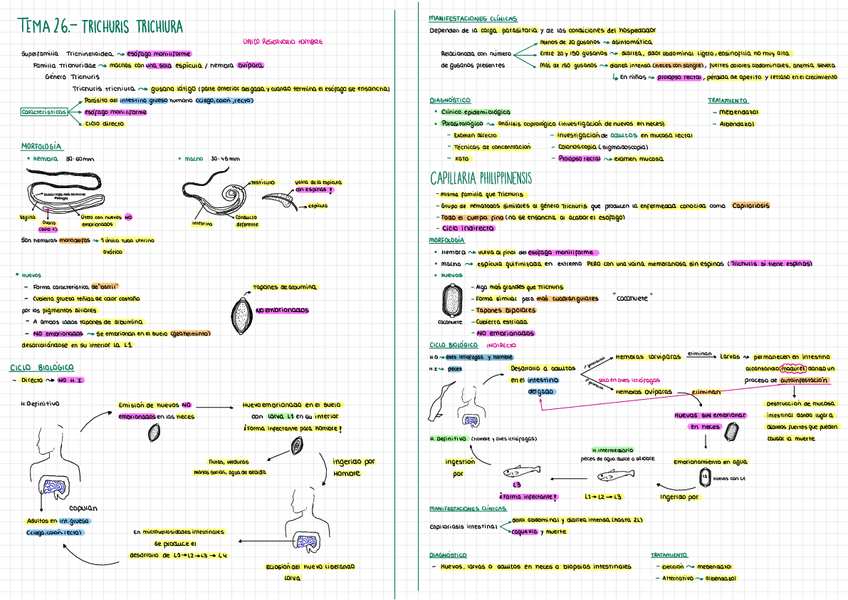 TEMA 26.- TRICHURIS TRICHIURA
ÚNICO RESERVORIO HOMBRE
Superfamilia Trichinelloidea → esófago moniliforme
Familia Trichuridae → machos con una sola espícula / hembra ovípara
Género Trichuris
Trichuris trichiura → gusano látigo (parte anterior delgada y cuando termina el esófago se ensancha)
Características
Parásito del intestino grueso humano (ciego, colon, recto)
esófago moniliforme
Ciclo directo
MORFOLOGÍA
• hembra 30-50mm
• macho 30-45mm
vagina
Ovario
Útero con huevos NO embrionados
testículo
intestino
Conducto deferente
con espinas!
espícula
Son hembras monodelfas → 1 única tuba uterina
ovárica
• HUEVOS
- Forma característica de "barril"
- Cubierta gruesa teñida de color castaño
por los pigmentos biliares
- A ambos lados tapones de albúmina
- NO embrionados → se embrionan en el suelo (geohelminto)
desarrollándose en su interior la L1
Tapones de albúmina
NO embrionados
CICLO BIOLÓGICO
- Directo → NO H.I.
H. Definitivo
Emisión de huevos NO
embrionados en las heces
Huevo embrionado en el suelo
con larva L1 en su interior
¡Forma infectante para hombre!
frutas, verduras
ingerido por
hombre
Eclosión del huevo liberando
larva
En microvellosidades intestinales
se produce el
desarrollo de L1→L2→L3→L4
copulan
Adultos en int. grueso
(ciego, colon, recto)
MANIFESTACIONES CLÍNICAS
Dependen de la carga parasitaria y de las condiciones del hospedador
Relacionada con número
de gusanos presentes
Menos de 20 gusanos → asintomática
Entre 20 y 150 gusanos → diarrea, dolor abdominal ligero, eosinofilia no muy alta
Más de 150 gusanos → diarrea intensa (heces con sangre), fuertes dolores abdominales, anemia severa
en niños → prolapso rectal, pérdida de apetito y retraso en el crecimiento
DIAGNÓSTICO
• Clínico epidemiológico
• Parasitológico → análisis coprológico (investigación de huevos en heces)
- Examen directo
- Técnicas de concentración
- Kato
- Investigación de adultos en mucosa rectal
- Colonoscopia (sigmoidoscopia)
- Prolapso rectal → examen mucosa
TRATAMIENTO
- Mebendazol
- Albendazol
CAPILLARIA PHILIPPINENSIS
- misma familia que Trichuris
- Grupo de nematodos similares al género Trichuris que producen la enfermedad conocida como Capilariasis
- Todo el cuerpo fino (no se ensancha al acabar el esófago)
- Ciclo indirecto
MORFOLOGÍA
• Hembra → vulva al final del esófago moniliforme
• Macho → espícula quitinizada en extremo PERO con una vaina membranosa sin espinas (Trichuris si tiene espinas)
• Huevos
- Algo más grandes que Trichuris
- Forma similar pero más cuadrangulares "cacahuete"
- Tapones bipolares
- Cubierta estriada
- NO embrionados
cacahuete
CICLO BIOLÓGICO INDIRECTO
H.D → aves ictiófagas y hombre
H.I → peces
Desarrollo a adultos
en el intestino
delgado
Hembras larvíparas eliminan Larvas → permanecen en intestino
alcanzando madurez dando un
proceso de autoinfestación
Destrucción de mucosa
intestinal dando lugar a
diarreas fuertes que pueden
causar la muerte
solo en aves ictiófagas
Hembras ovíparas eliminan
huevos sin embrionar
en heces
Embrionamiento en agua
huevos con L1
Ingerido por
H. intermediario
peces de agua dulce o salobre
L1→L2→L3
L3
¡Forma infectante!
ingestión
por
H. Definitivo (hombre y aves ictiófagas)
MANIFESTACIONES CLÍNICAS
Capilariasis intestinal
dolor abdominal y diarrea intensa (hasta 2L)
caquexia y muerte
DIAGNÓSTICO
- Huevos, larvas o adultos en heces o biopsias intestinales
TRATAMIENTO
- Elección → mebendazol
- Alternativo → albendazol